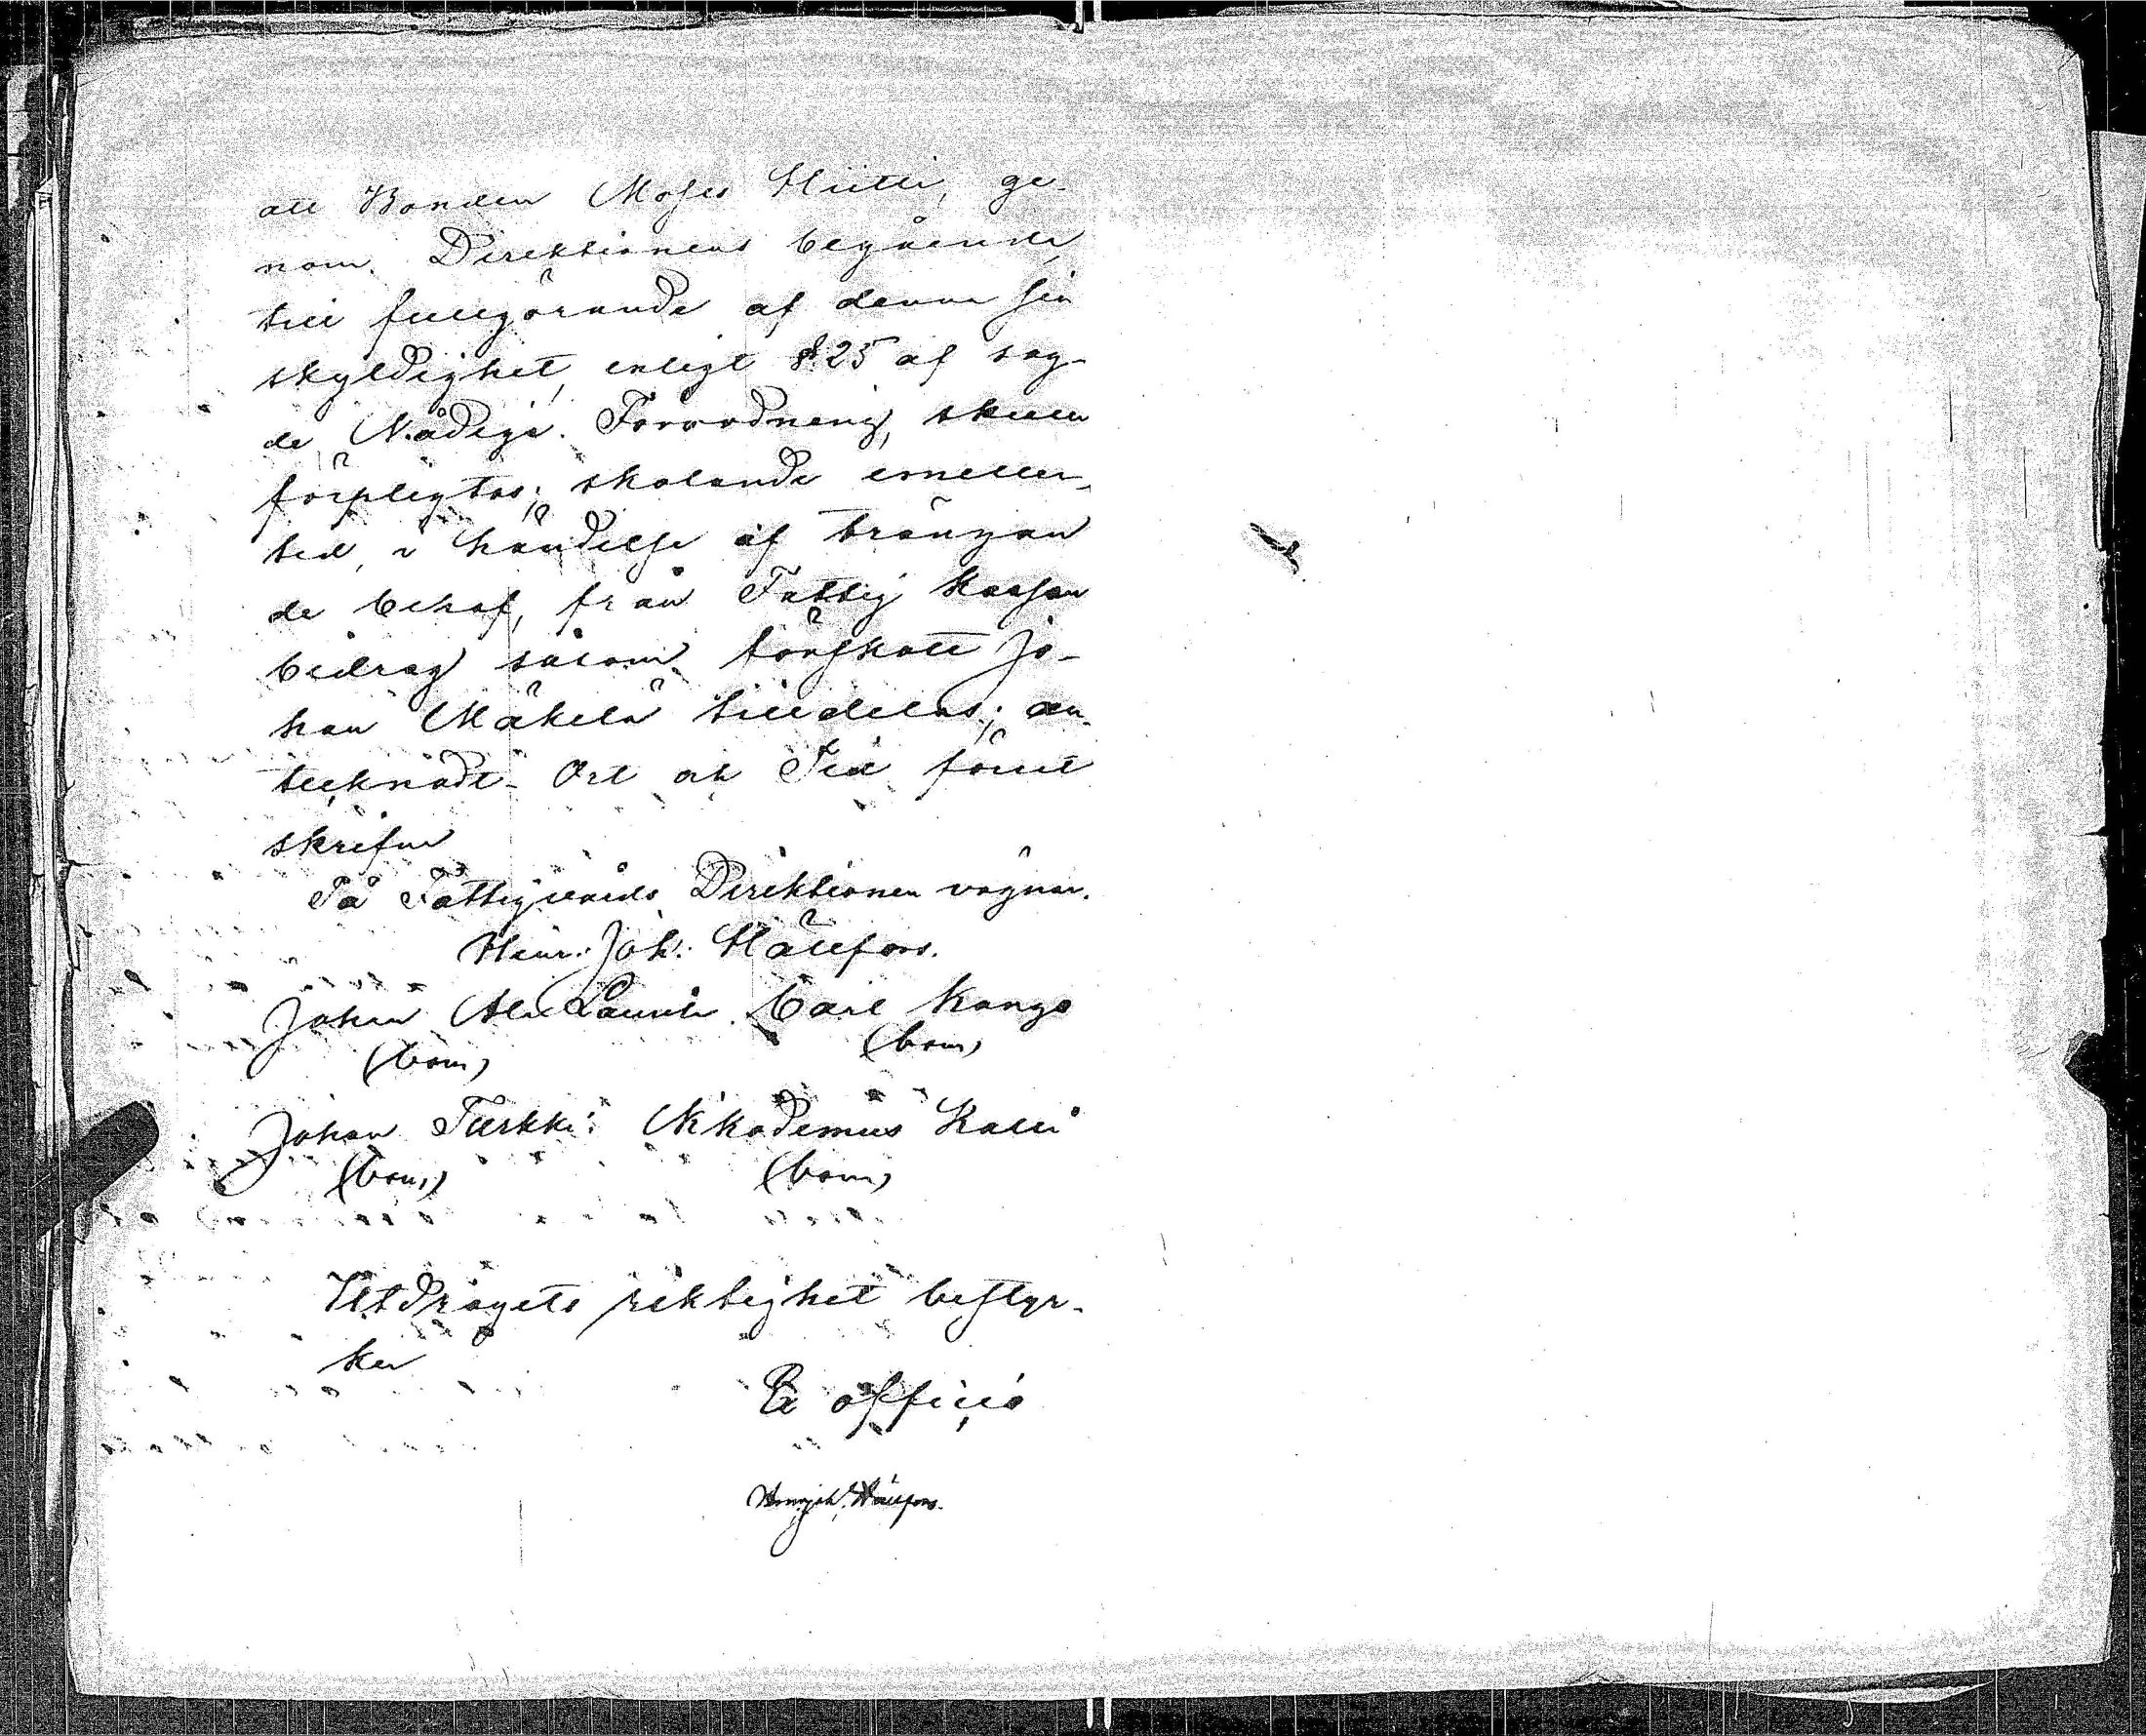 att Bonden Moses Hiitti, ge-
nom Direktionens begående,
till fullgörande af denna sin
skyldighet, enligt §25 af sag-
de Nådiga Förordning, skulle
förpligtas; skolande emeller-
tid, i händelse af trängan
de behof, från Fattig Kassan
bidrag såsom förskott Jo-
han Mäkelä tilldelas; an-
tecknadt. Ort och Tid förut
skrifne
På Fattigvårds Direktionen vägnar.
Henr: Joh: Hällfors.
Johan Carl Kangs
(bom) (bom)
Johan Turkki Nikodemus Kalli
(bom) (bom)
Utdragets riktighet bestyr-
ker
Ex officio
Henr Joh: Hällfors.